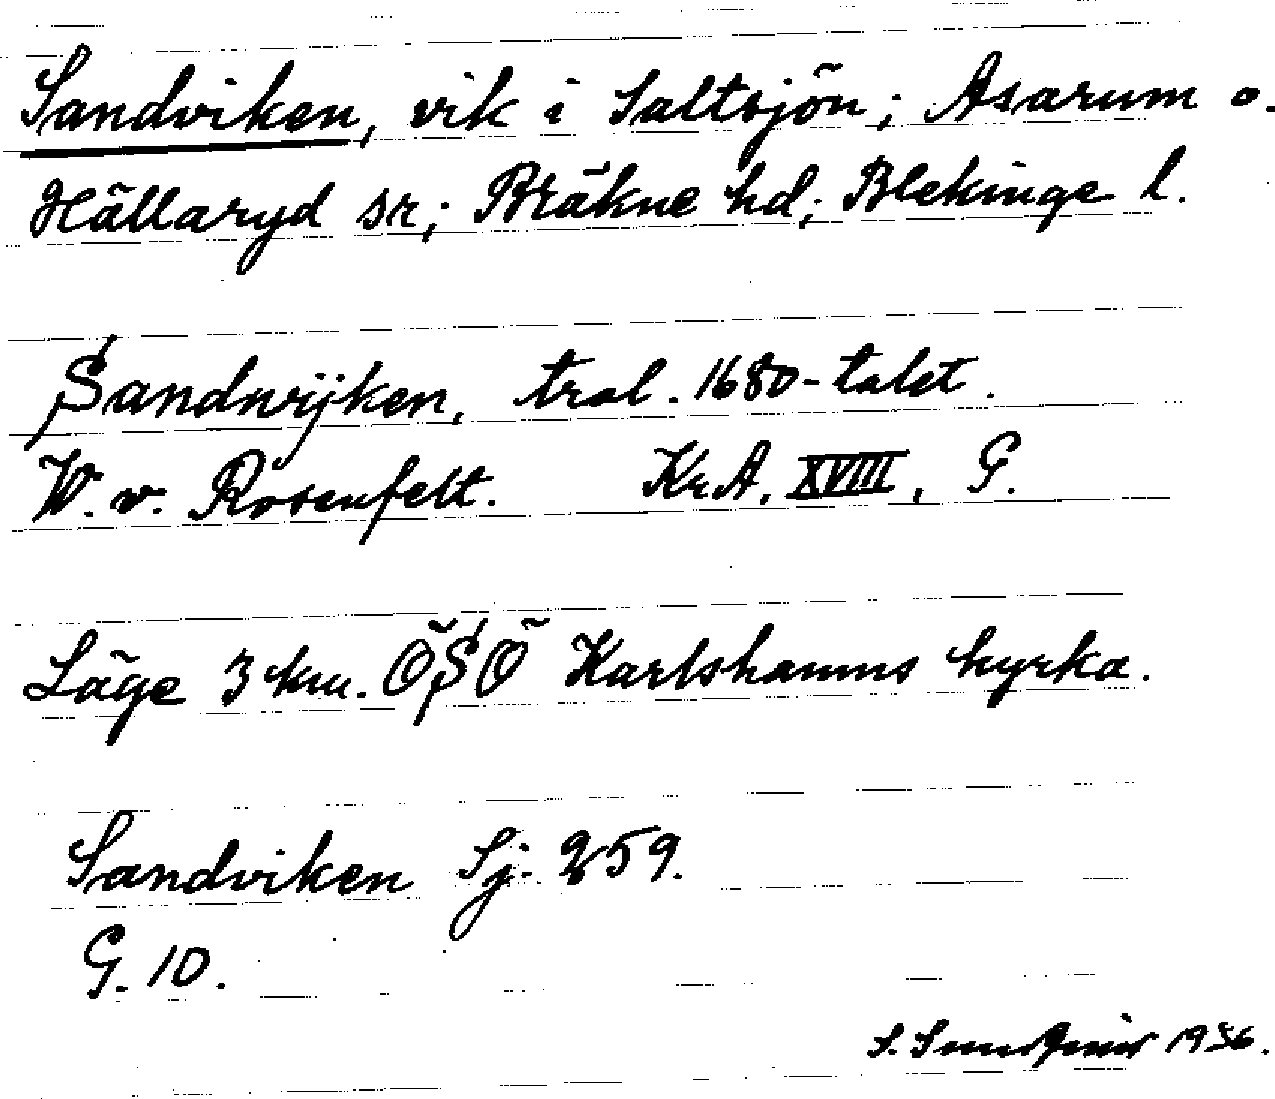 Sandviken, vik i Saltsjön; Asarum o.
Hällaryd sr; Bräkne hd; Blekinge l.
Sandwijken, trol. 1680-talet.
W. v. Rosenfelt. KrA, XVIII, G.
Läge 3 km. ÖSÖ Karlshamns kyrka.
Sandviken Sj. 259.
G. 10.
S. 1936.